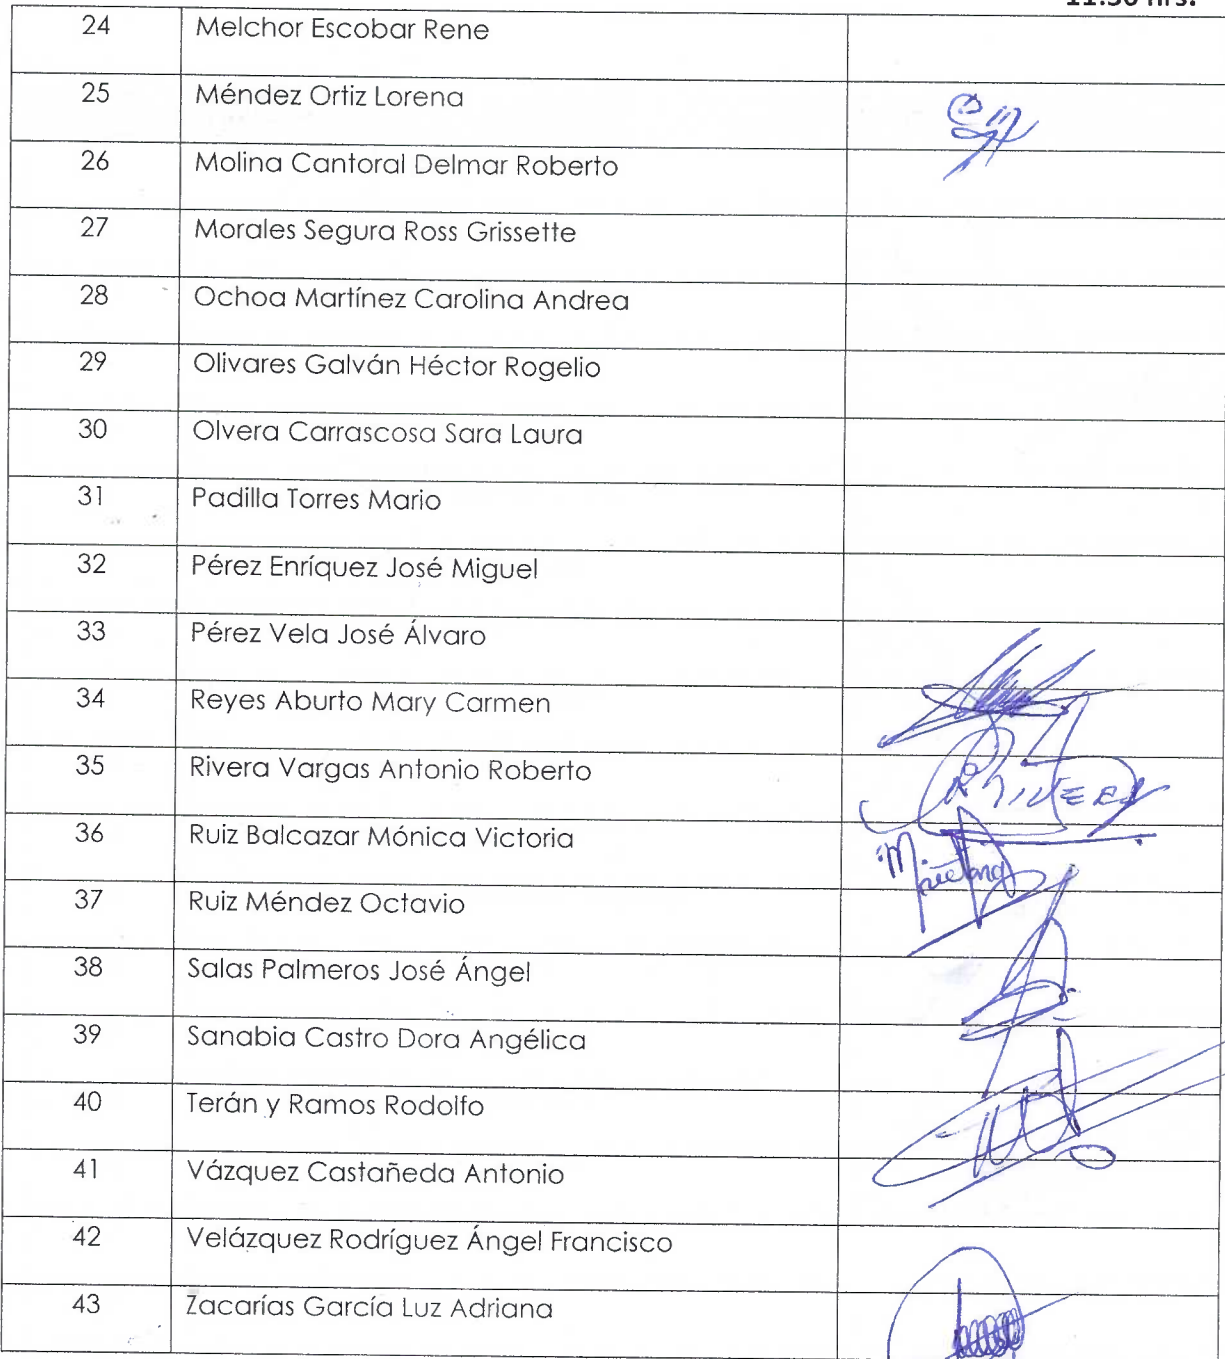 11:30 hrs.
24 Melchor Escobar Rene
25 Méndez Ortiz Lorena
26 Molina Cantoral Delmar Roberto
27 Morales Segura Ross Grissette
28 Ochoa Martínez Carolina Andrea
29 Olivares Galván Héctor Rogelio
30 Olvera Carrascosa Sara Laura
31 Padilla Torres Mario
32 Pérez Enríquez José Miguel
33 Pérez Vela José Álvaro
34 Reyes Aburto Mary Carmen
35 Rivera Vargas Antonio Roberto
36 Ruiz Balcazar Mónica Victoria
37 Ruiz Méndez Octavio
38 Salas Palmeros José Ángel
39 Sanabia Castro Dora Angélica
40 Terán y Ramos Rodolfo
41 Vázquez Castañeda Antonio
42 Velázquez Rodríguez Ángel Francisco
43 Zacarías García Luz Adriana